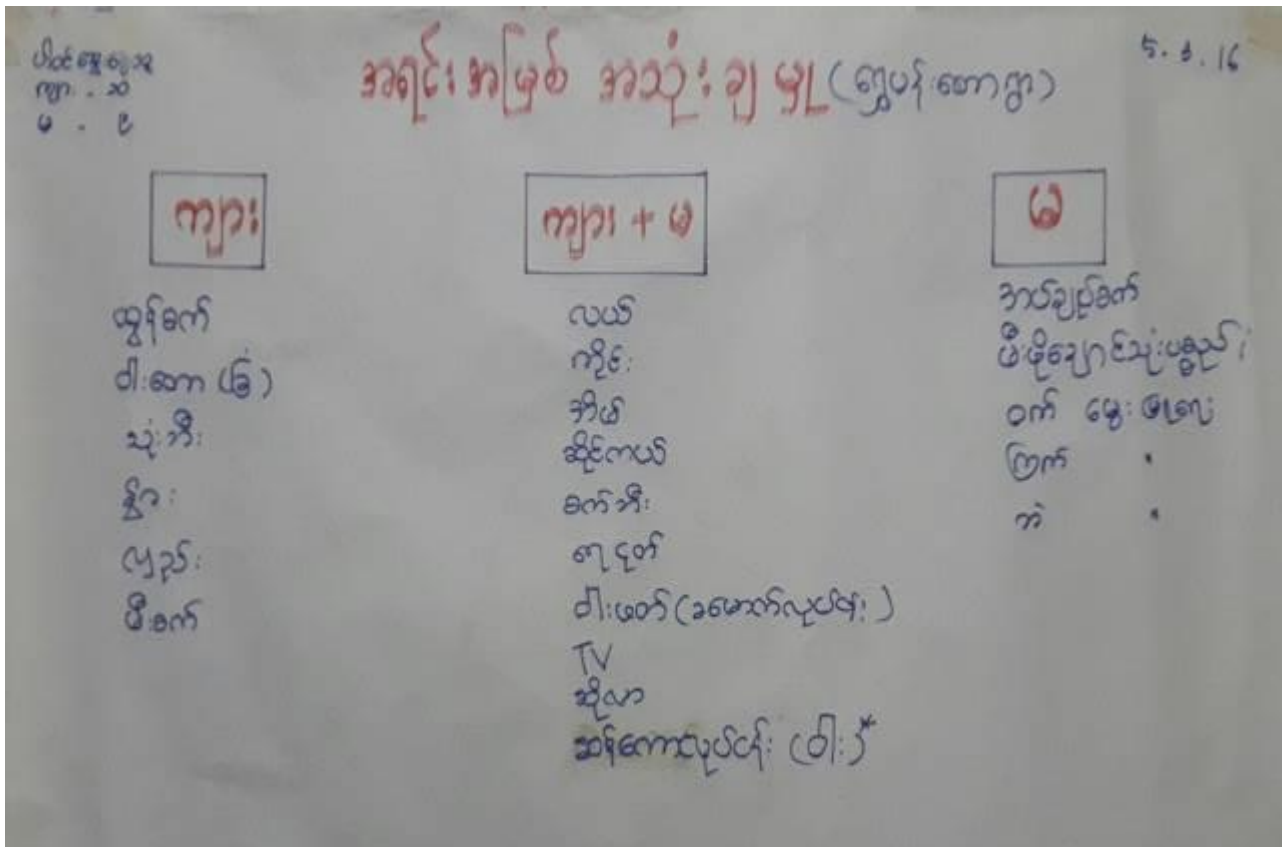 ပါဝင်ဆွေးနွေးသူ
ကျား - ၁၀
မ - ၉
အရင်းအမြစ် အသုံးချမှု (ရွှေပန်းတောရွာ)
5.3.16
ကျား
ထွန်စက်
ဝါးတော (ခြံ)
သုံးဘီး
နွား
လှည်း
မီးစက်
ကျား + မ
လယ်
ကိုင်း
အိမ်
ဆိုင်ကယ်
စက်ဘီး
ရေငုတ်
ဝါးဖတ် (ခမောက်လုပ်ငန်း)
TV
ဆိုလာ
ဆန်ကောလုပ်ငန်း (ဝါး)*
မ
အပ်ချုပ်စက်
မီးဖိုချောင်သုံးပစ္စည်း
ဝက် မွေးမြူရေး
ကြက် "
ဘဲ "